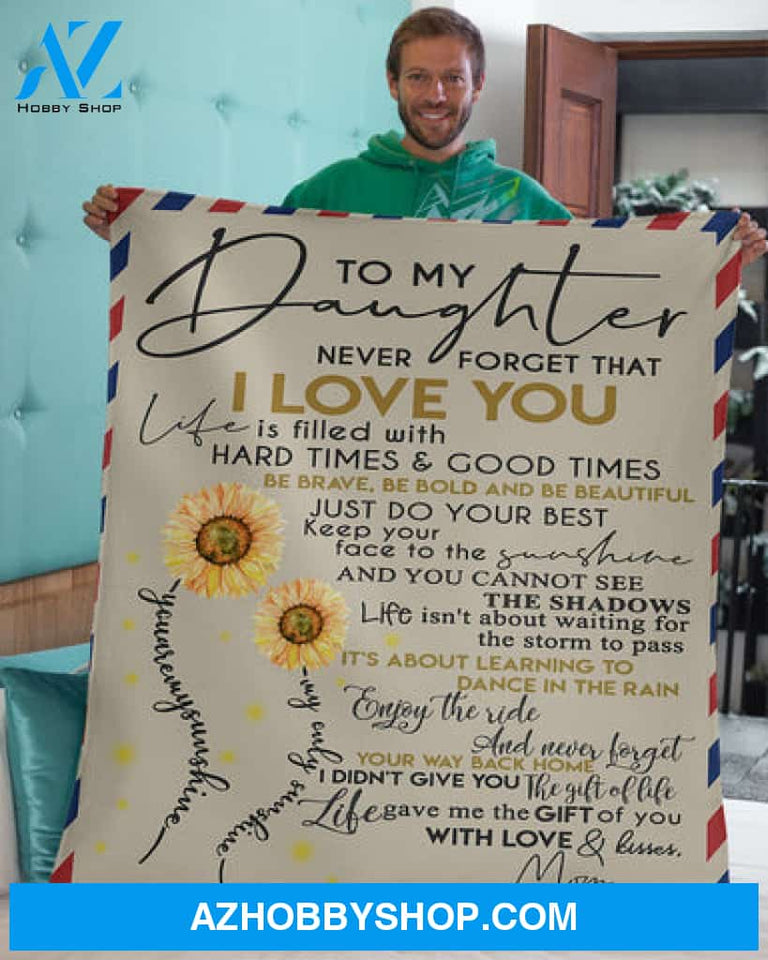 AZ
HOBBY SHOP
TO MY
Daughter
NEVER FORGET THAT
I LOVE YOU
Life is filled with
HARD TIMES & GOOD TIMES
BE BRAVE, BE BOLD AND BE BEAUTIFUL
JUST DO YOUR BEST
Keep your
face to the sunshine
AND YOU CANNOT SEE
THE SHADOWS
Life isn't about waiting for
the storm to pass
IT'S ABOUT LEARNING TO
DANCE IN THE RAIN
Enjoy the ride
And never forget
YOUR WAY BACK HOME
I DIDN'T GIVE YOU The gift of life
Life gave me the GIFT of you
WITH LOVE & kisses,
Mom
you are my sunshine
my only sunshine
AZHOBBYSHOP.COM